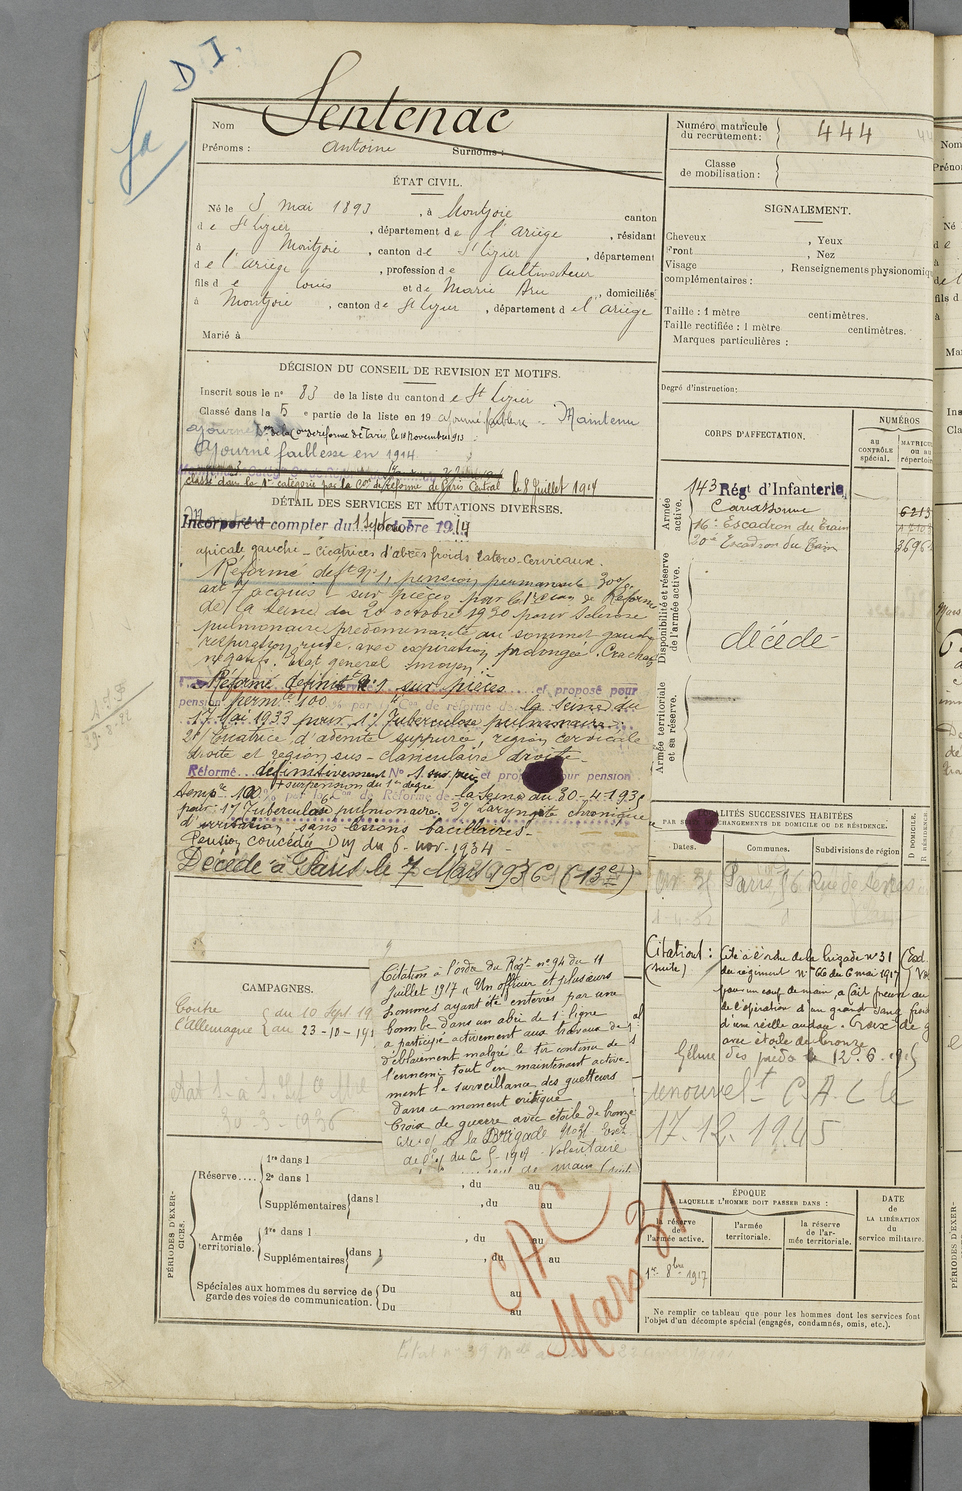 D. I.
Nom Sentenac
Prénoms : Antoine Surnoms :
Numéro matricule du recrutement : 444
Classe de mobilisation :
ÉTAT CIVIL.
Né le 3 mai 1893, à Montjoie canton
de St Lizier, département de l'Ariège, résidant
à Montjoie, canton de St Lizier, département
de l'Ariège, profession de cultivateur
fils de Louis et de Marie Aru, domiciliés
à Montjoie, canton de St Lizier, département de l'Ariège
Marié à
SIGNALEMENT.
Cheveux , Yeux
Front , Nez
Visage , Renseignements physionomiq
complémentaires :
Taille : 1 mètre centimètres.
Taille rectifiée : 1 mètre centimètres.
Marques particulières :
Degré d'instruction:
DÉCISION DU CONSEIL DE REVISION ET MOTIFS.
Inscrit sous le no 83 de la liste du canton de St Lizier
Classé dans la 5 e partie de la liste en 19 ajourné faiblesse - Maintenu
de réforme de Paris le 18 Novembre 1913
Ajourné faiblesse en 1914
classé dans la 1re catégorie par la Con de Réforme de Paris Central le 8 Juillet 1914
DÉTAIL DES SERVICES ET MUTATIONS DIVERSES.
Incorporé à compter du 1 Sept 1914
apicale gauche - Cicatrices d'abcès froids latéro-Cervicaux.
Réformé deft no 1, pension permanente 30%
art 7 acquis - sur pièces par la 1re Con de Réforme
de la Seine du 20 octobre 1930 pour sclérose
pulmonaire prédominante au sommet gauche
respiration rude avec expiration prolongée. Crachats
négatifs. Etat général moyen.
Réformé définitt no 1 sur pièces et proposé pour
pension permte 100 % par la Con de réforme de la Seine du
17 Mai 1933 pour 1o/ Tuberculose pulmonaire.
2o/ Cicatrice d'adénite suppurée, région cervicale
droite et région sus-claviculaire droite -
Réformé définitivement No 1 sur pièces et proposé pour pension
temp. 100 % + surpension du 1er degré par la Con de Réforme de la Seine du 30-4-193
pour 1o/ Tuberculose pulmonaire. 2o/ Laryngite chronique
d'irritation sans lésions bacillaires -
Pension concédée DM du 6-nov-1934 -
Décédé à Paris le 7 Mars 1936 (13e)
CORPS D'AFFECTATION.
NUMÉROS
au CONTRÔLE spécial.
MATRICULE ou au répertoire
Armée active.
143 Régt d'Infanterie
Carcassonne
16e Escadron du Train
20e Escadron du Train
6213
3696
Disponibilité et réserve de l'armée active.
décédé -
Armée territoriale et sa réserve.
LOCALITÉS SUCCESSIVES HABITÉES
PAR SUITE DE CHANGEMENTS DE DOMICILE OU DE RÉSIDENCE.
Dates. Communes. Subdivisions de région
D DOMICILE.
R RÉSIDENCE
Paris 6 Rue de Sèvres
CAMPAGNES.
Contre l'Allemagne { du 10 Sept 19
au 23-10-19
Citation à l'ordre du Régt no 94 du 11
Juillet 1917 "Un officier et plusieurs
hommes ayant été enterrés par une
bombe dans un abri de 1e ligne
a participé activement aux travaux de
déblaiement malgré le tir continu de
l'ennemi tout en maintenant active-
ment la surveillance des guetteurs
dans ce moment critique
Croix de guerre avec étoile de bronze
de la Brigade
Volontaire
de main (suit
Citations : (suite)
Cité à l'ordre de la brigade no 31
de régiment no 66 du 6 mai 1917
pour un coup de main, a fait preuve au
de l'opération d'un grand sang froid
d'une réelle audace. Croix de g
avec étoile de bronze
Gelure des pieds le 12-6-1915
renouvelt C.A.C le
17.12.1945
PÉRIODES D'EXERCICES.
Réserve.... 1re dans l
2e dans l , du au
Supplémentaires { dans l , du au
Armée territoriale. 1re dans l , du au
Supplémentaires { dans l , du au
Spéciales aux hommes du service de garde des voies de communication. { Du au
Du au
CAC
Mars 31
ÉPOQUE
LAQUELLE L'HOMME DOIT PASSER DANS :
la réserve de l'armée active.
l'armée territoriale.
la réserve de l'armée territoriale.
DATE de LA LIBÉRATION du service militaire.
1er 8bre 1917
Ne remplir ce tableau que pour les hommes dont les services font
l'objet d'un décompte spécial (engagés, condamnés, omis, etc.).